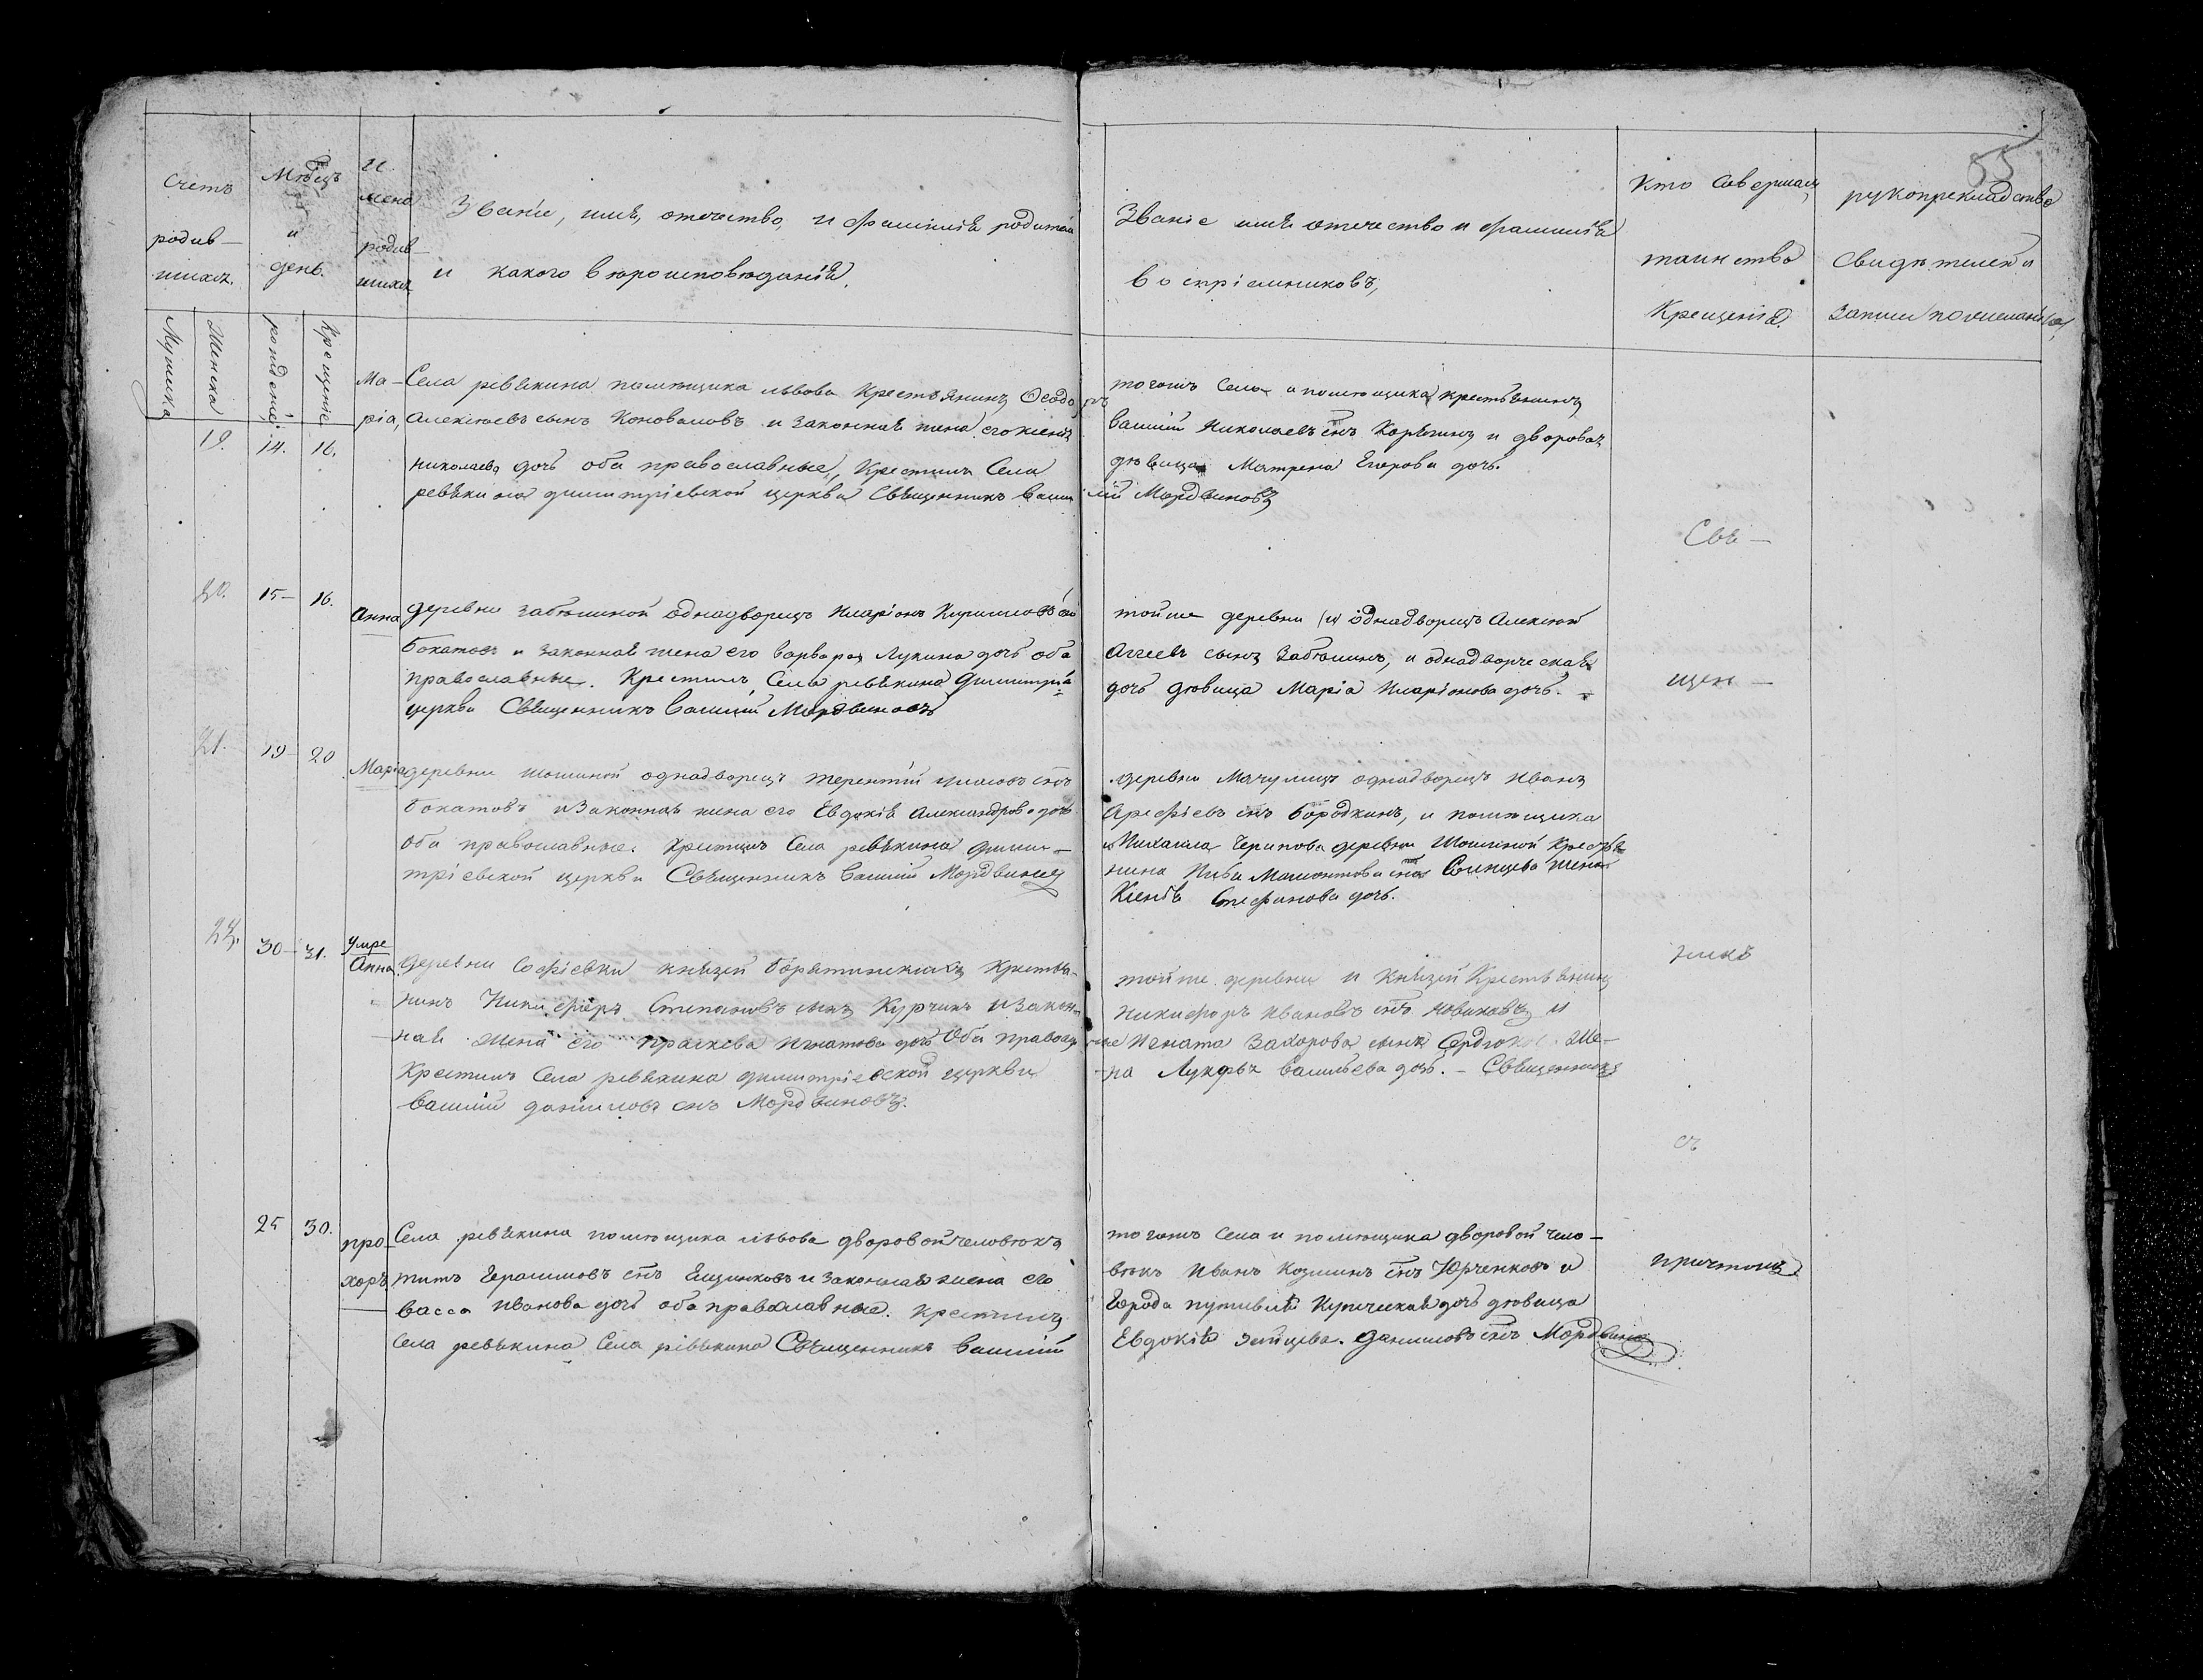 85
Счетъ
родив-
шихся.
Мѣсяцъ
и
день.
И
мена
родив
шихся
Званіе, имя, отечество, и фамилія родителей
и какого вѣроисповѣданія.
Званіе имя отечество и фамилія
воспріемниковъ,
Кто совершалъ
таинство
Крещенія.
рукоприкладство
Свидѣтелей
записи
Мужеска
Женска
рожденіе.
Крещеніе
19. 14. 16.
Ма-
рія,
Села ревякина помѣщика львова Крестьянинъ Ѳеодоръ
Алексѣевъ сынъ Коноваловъ и законная жена его
николаева дочь оба православные, Крестилъ Села
ревякина димитріевской церкви Священникъ Васи
тогожъ Села и помѣщика крестьянинъ
василій Николаевъ снъ Корякинъ и дворовая
дѣвица Матрена Егорова дочь.
лій Мордвиновъ
Свя-
20. 15- 16.
Анна
деревни забѣлиной однодворецъ Иларіонъ Кириловъ снъ
Бокатовъ и законная жена его варвара Лукина дочь оба
православные. Крестилъ Села ревякина Димитріе
церкви Священникъ Василій Мордвиновъ
тойже деревни однодворецъ Алексѣй
Аггеевъ сынъ Забѣлинъ, и однодворческая
дочь дѣвица Марія Иларіонова дочь.
щен-
21. 19- 20
Марія
деревни шошиной однодворецъ терентій снъ
бокатовъ и законная жена его Евдокія Александрова дочь
оба православные. Крестилъ Села ревякина дими-
тріевской церкви Священникъ Василій Мордвиновъ
деревни Мачулищъ однодворецъ Иванъ
Арефіевъ снъ бородкинъ, и помѣщика
Михаила Черепова деревни Шошиной Крестья
нина Мамонтова сна жена
Ксенія Стефанова дочь.
22. 30- 31.
умре
Анна.
деревни Софіевки князей борятинскихъ Крестья-
нинъ Никифоръ Степановъ сынъ Курчинъ и закон-
ная жена его праскева игнатова дочь Оба православ
ные
Крестилъ Села ревякина димитріевской церкви
василій даниловъ снъ Мордвиновъ.
тойже деревни и Князей Крестьянинъ
никифоръ ивановъ снъ новиковъ и
Игната Захарова сына Сердюкова Же-
на Лукерья васильева дочь. - Священникъ
никъ
съ
25 30.
про-
хоръ
Села ревякина помѣщика львова дворовой человѣкъ
титъ Герасимовъ снъ Ещенковъ и законная жена его
васса иванова дочь оба православные. Крестилъ
Села ревякина Села ревякина Священникъ василій
тогожъ Села и помѣщика дворовой чело-
вѣкъ иванъ Козминъ снъ Юрченковъ и
Города путивля Купеческая дочь дѣвица
Евдокія Зайцева. Даниловъ снъ Мордвиновъ
причтомъ